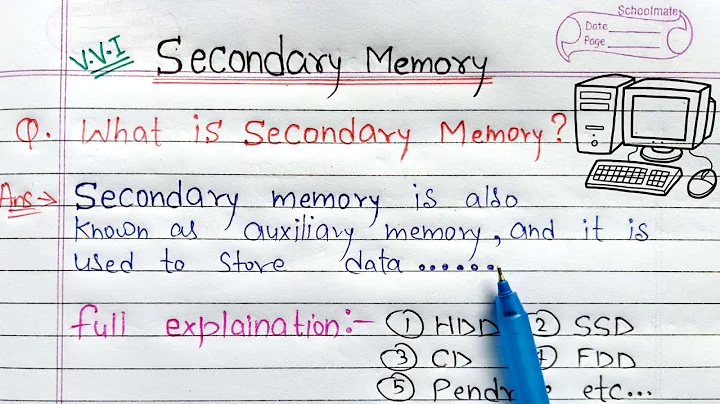 Schoolmate
Date
Page
V.V.I Secondary Memory
Q. What is Secondary Memory?
Ans→ Secondary memory is also
known as auxiliary memory, and it is
used to store data.......
full explaination:- ① HDD ② SSD
③ CD FDD
⑤ etc...